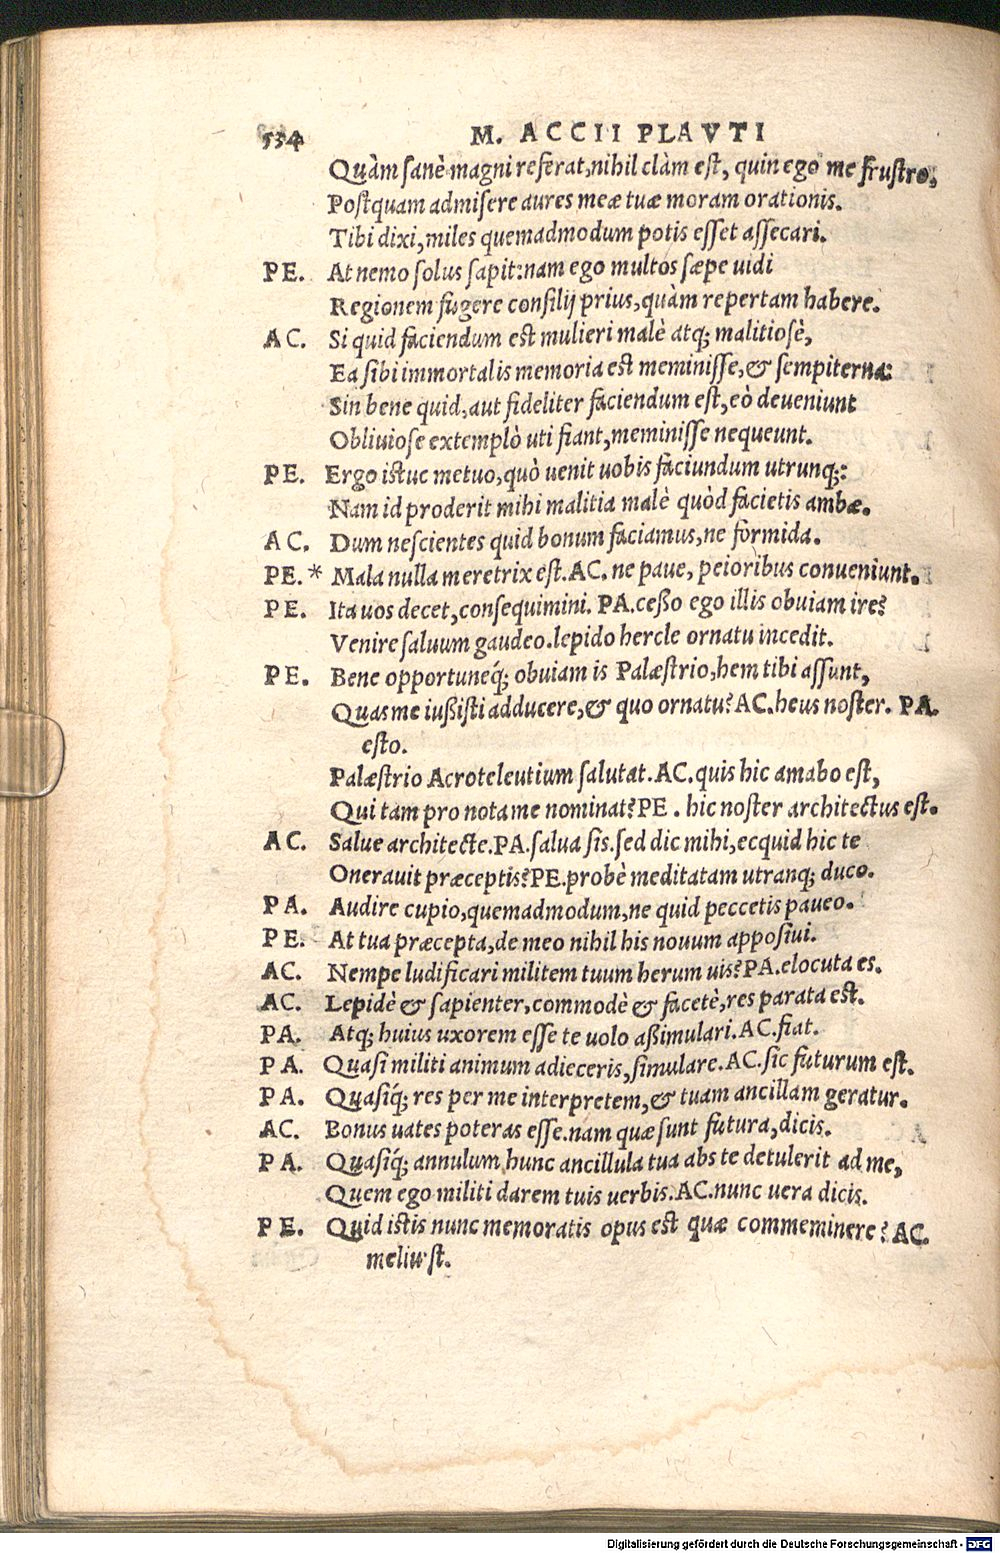 534 M. ACCII PLAVTI
Quàm sanè magni referat, nihil clàm est, quin ego me frustro,
Postquam admisere aures meæ tuæ moram orationis.
Tibi dixi, miles quemadmodum potis esset assecari.
PE. At nemo solus sapit: nam ego multos sæpe uidi
Regionem fugere consilij prius, quàm repertam habere.
AC. Si quid faciendum est mulieri malè atq; malitiosè,
Ea sibi immortalis memoria est meminisse, & sempiterna:
Sin bene quid, aut fideliter faciendum est, eò deueniunt
Obliuiose extemplò uti fiant, meminisse nequeunt.
PE. Ergo istuc metuo, quò uenit uobis faciundum utrunq;:
Nam id proderit mihi malitia malè quòd facietis ambæ.
AC. Dum nescientes quid bonum faciamus, ne formida.
PE. * Mala nulla meretrix est. AC. ne paue, peioribus conueniunt.
PE. Ita uos decet, consequimini. PA. ceßo ego illis obuiam ire?
Venire saluum gaudeo. lepido hercle ornatu incedit.
PE. Bene opportuneq́; obuiam is Palæstrio, hem tibi assunt,
Quas me iußisti adducere, & quo ornatu? AC. heus noster. PA.
esto.
Palæstrio Acroteleutium salutat. AC. quis hic amabo est,
Qui tam pro nota me nominat? PE. hic noster architectus est.
AC. Salue architecte. PA. salua sis. sed dic mihi, ecquid hic te
Onerauit præceptis? PE. probè meditatam utranq; duco.
PA. Audire cupio, quemadmodum, ne quid peccetis paueo.
PE. At tua præcepta, de meo nihil his nouum apposiui.
AC. Nempe ludificari militem tuum herum uis? PA. elocuta es.
AC. Lepidè & sapienter, commodè & facetè, res parata est.
PA. Atq; huius uxorem esse te uolo aßimulari. AC. fiat.
PA. Quasi militi animum adieceris, simulare. AC. sic futurum est.
PA. Quasiq́; res per me interpretem, & tuam ancillam geratur.
AC. Bonus uates poteras esse. nam quæ sunt futura, dicis.
PA. Quasiq́; annulum hunc ancillula tua abs te detulerit ad me,
Quem ego militi darem tuis uerbis. AC. nunc uera dicis.
PE. Quid istis nunc memoratis opus est quæ commeminere? AC.
meliu'st.
Digitalisierung gefördert durch die Deutsche Forschungsgemeinschaft - DFG